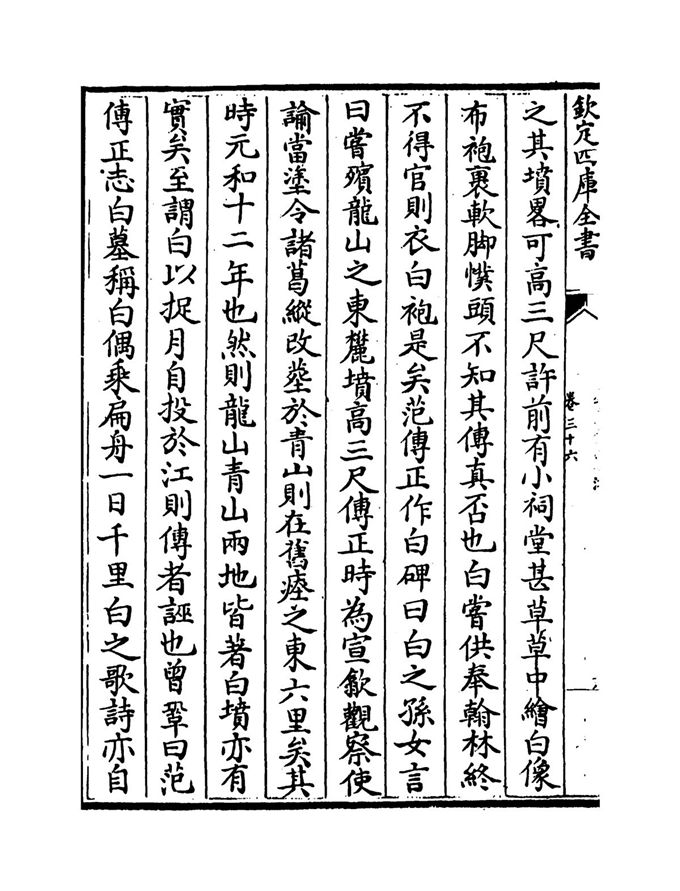 欽定四庫全書
卷三十六
之其墳畧可高三尺許前有小祠堂甚草草中繪白像
布袍裹軟脚幞頭不知其傳真否也白嘗供奉翰林終
不得官則衣白袍是矣范傳正作白碑曰白之孫女言
曰嘗殯龍山之東麓墳高三尺傳正時為宣歙觀察使
諭當塗令諸葛縱改塟於青山則在舊瘞之東六里矣其
時元和十二年也然則龍山青山兩地皆著白墳亦有
實矣至謂白以捉月自投於江則傳者誣也曾鞏曰范
傳正志白墓稱白偶乘扁舟一日千里白之歌詩亦自